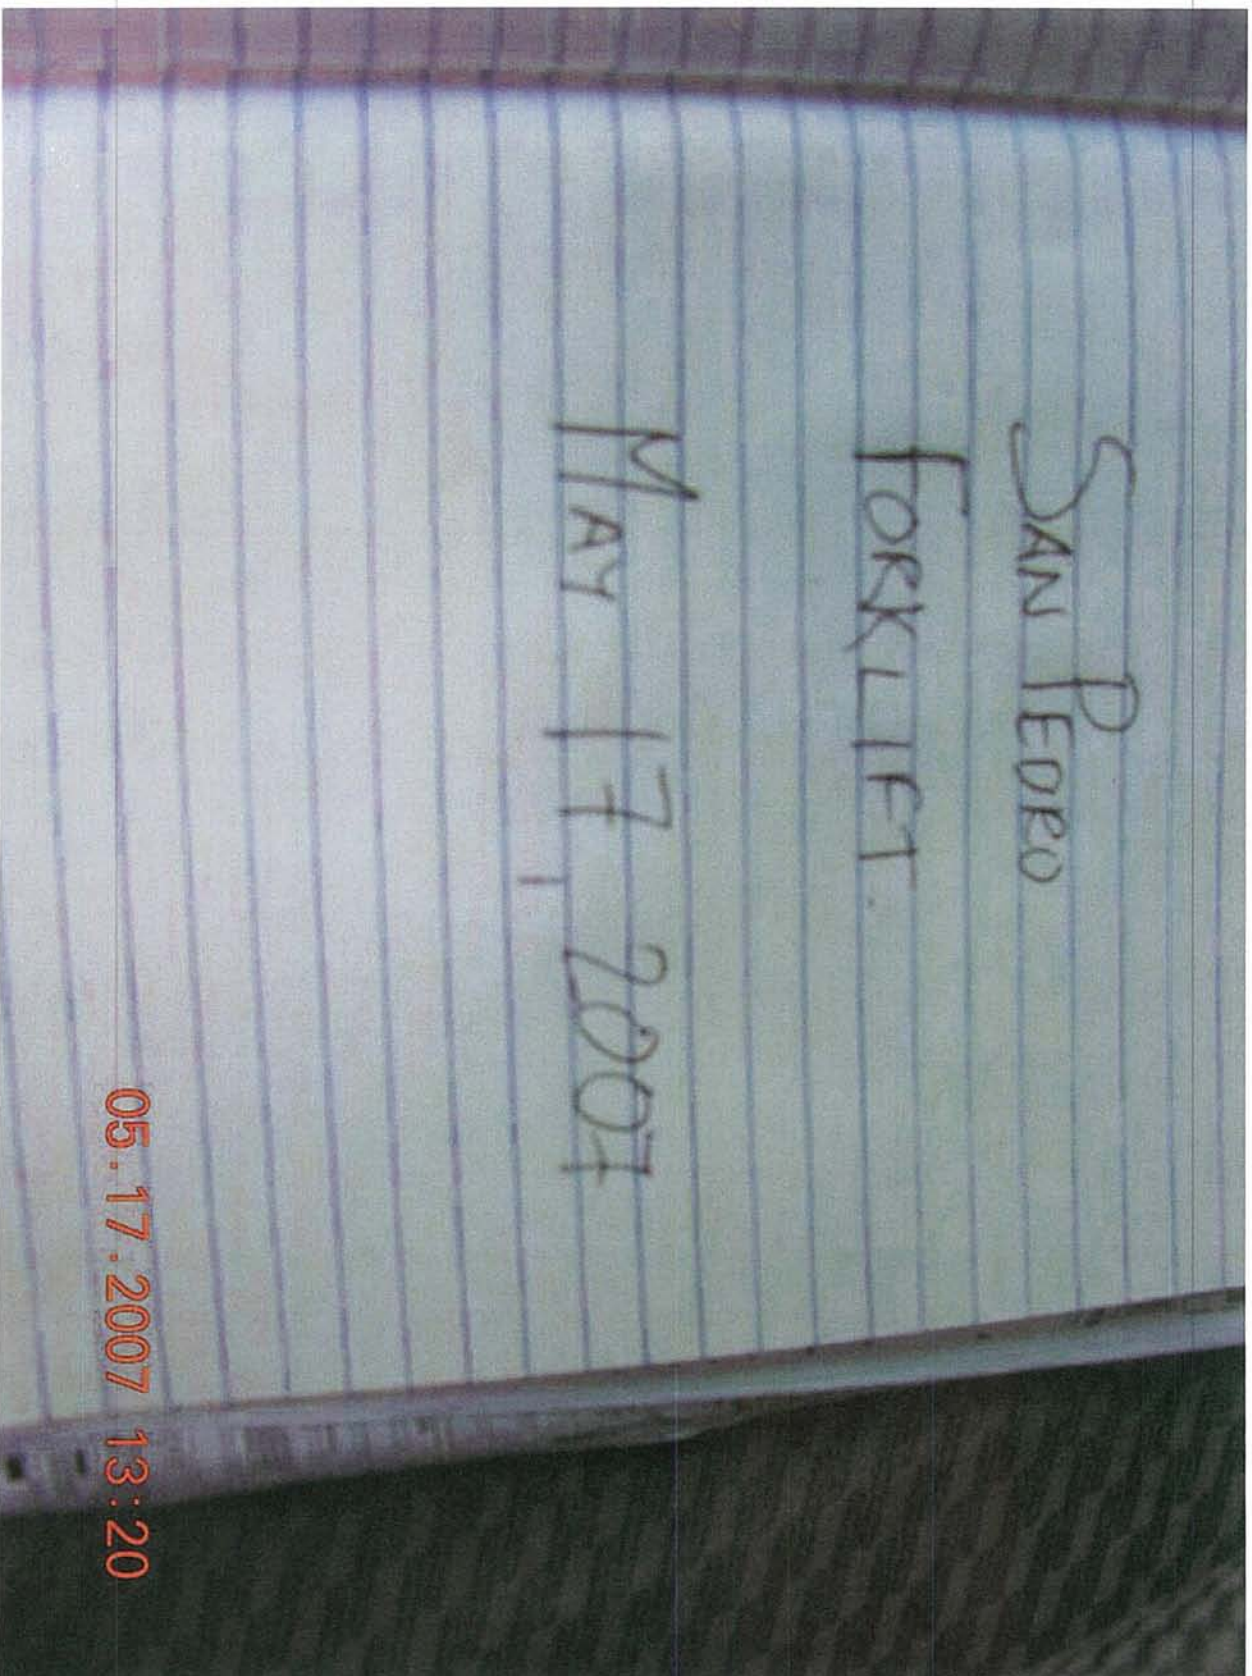 SAN PEDRO
FORKLIFT.
MAY 17 2007
05.17.2007 13:20